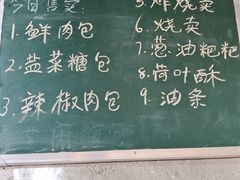 今日售卖
1.鲜肉包
2.盐菜糖包
3.辣椒肉包
5.炸烧卖
6.烧卖
7.葱油粑粑
8.荷叶酥
9.油条